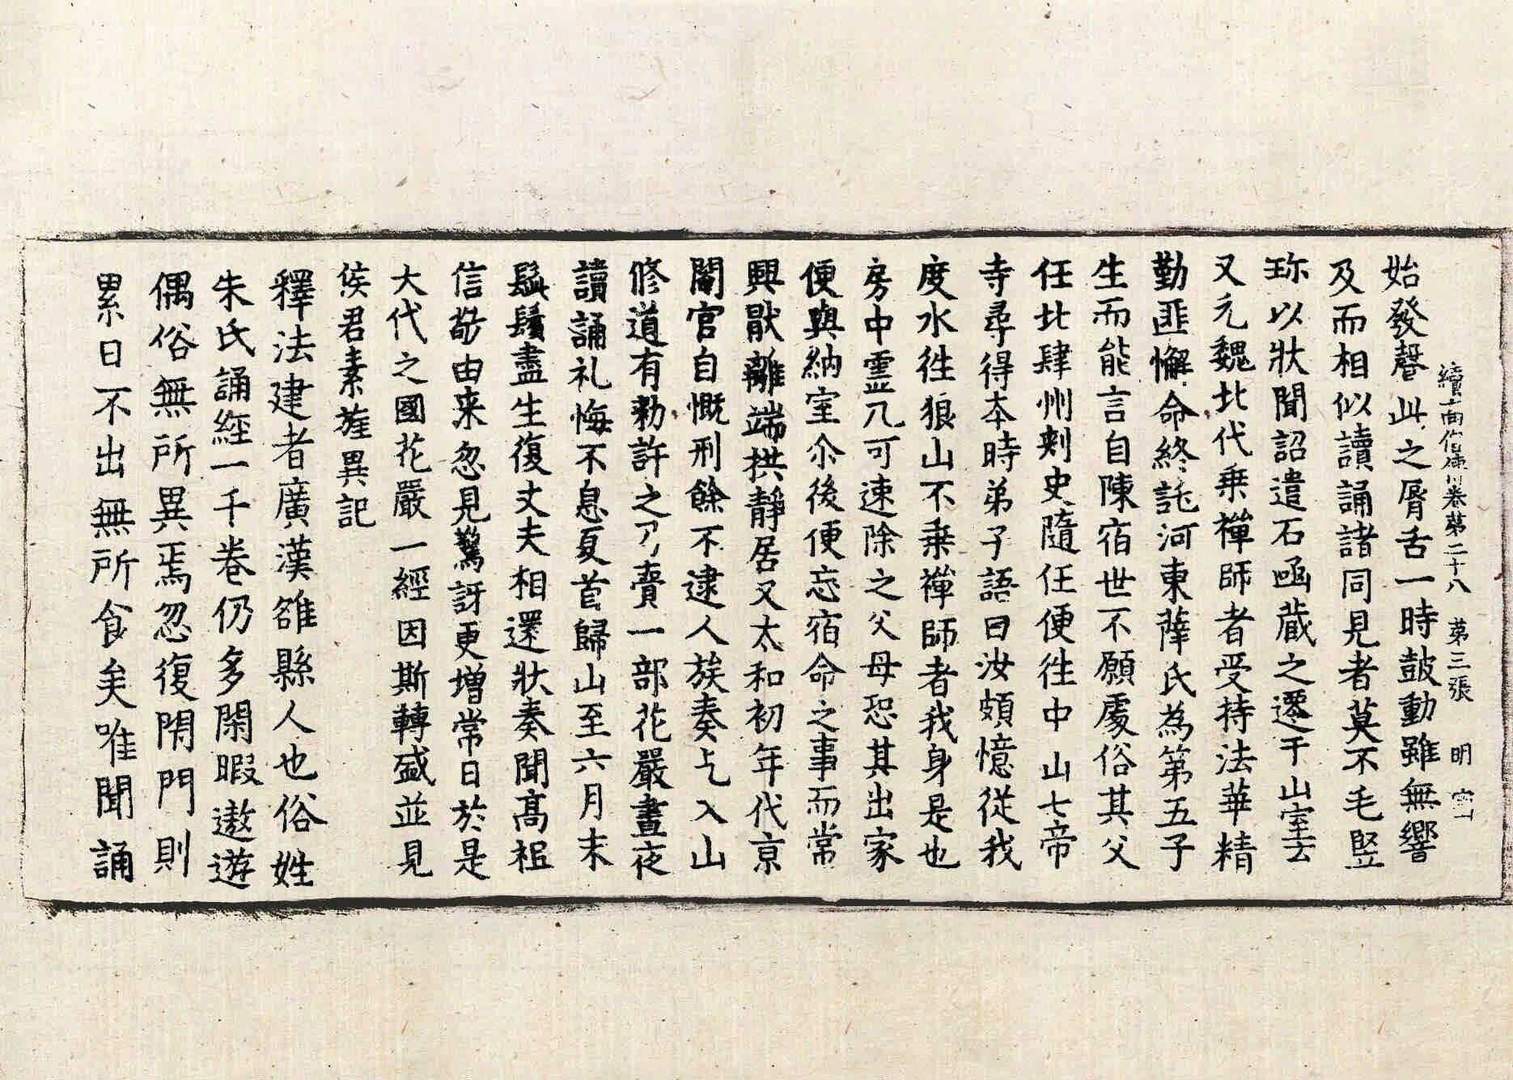 始發聲此之脣舌一時鼓動雖無響
續高僧傳卷第二十八 第三張 明
及而相似讀誦諸同見者莫不毛竪
珎以狀聞詔遣石凾藏之遷于山室云
又元魏北代乗禪師者受持法華精
勤匪懈命終託河東薛氏為第五子
生而能言自陳宿世不願處俗其父
任北肆州刺史隨任便往中山七帝
寺尋得夲時弟子語曰汝頗憶從我
度水往狼山不乗禪師者我身是也
房中靈几可速除之父母恐其出家
便與納室尒後便忘宿命之事而常
興猒離端拱静居又太和初年代京
閹官自慨刑餘不逮人族奏乞入山
修道有勑許之乃賷一部花嚴晝夜
讀誦礼悔不息夏首歸山至六月末
髭鬚盡生復丈夫相還狀奏聞髙祖
信敬由来忽見驚訝更增常日於是
大代之國花嚴一經因斯轉盛並見
侯君素旌異記
釋法建者廣漢雒縣人也俗姓
朱氏誦經一千卷仍多閑暇遨遊
偶俗無所異焉忽復閇門則
累日不出無所食矣唯聞誦